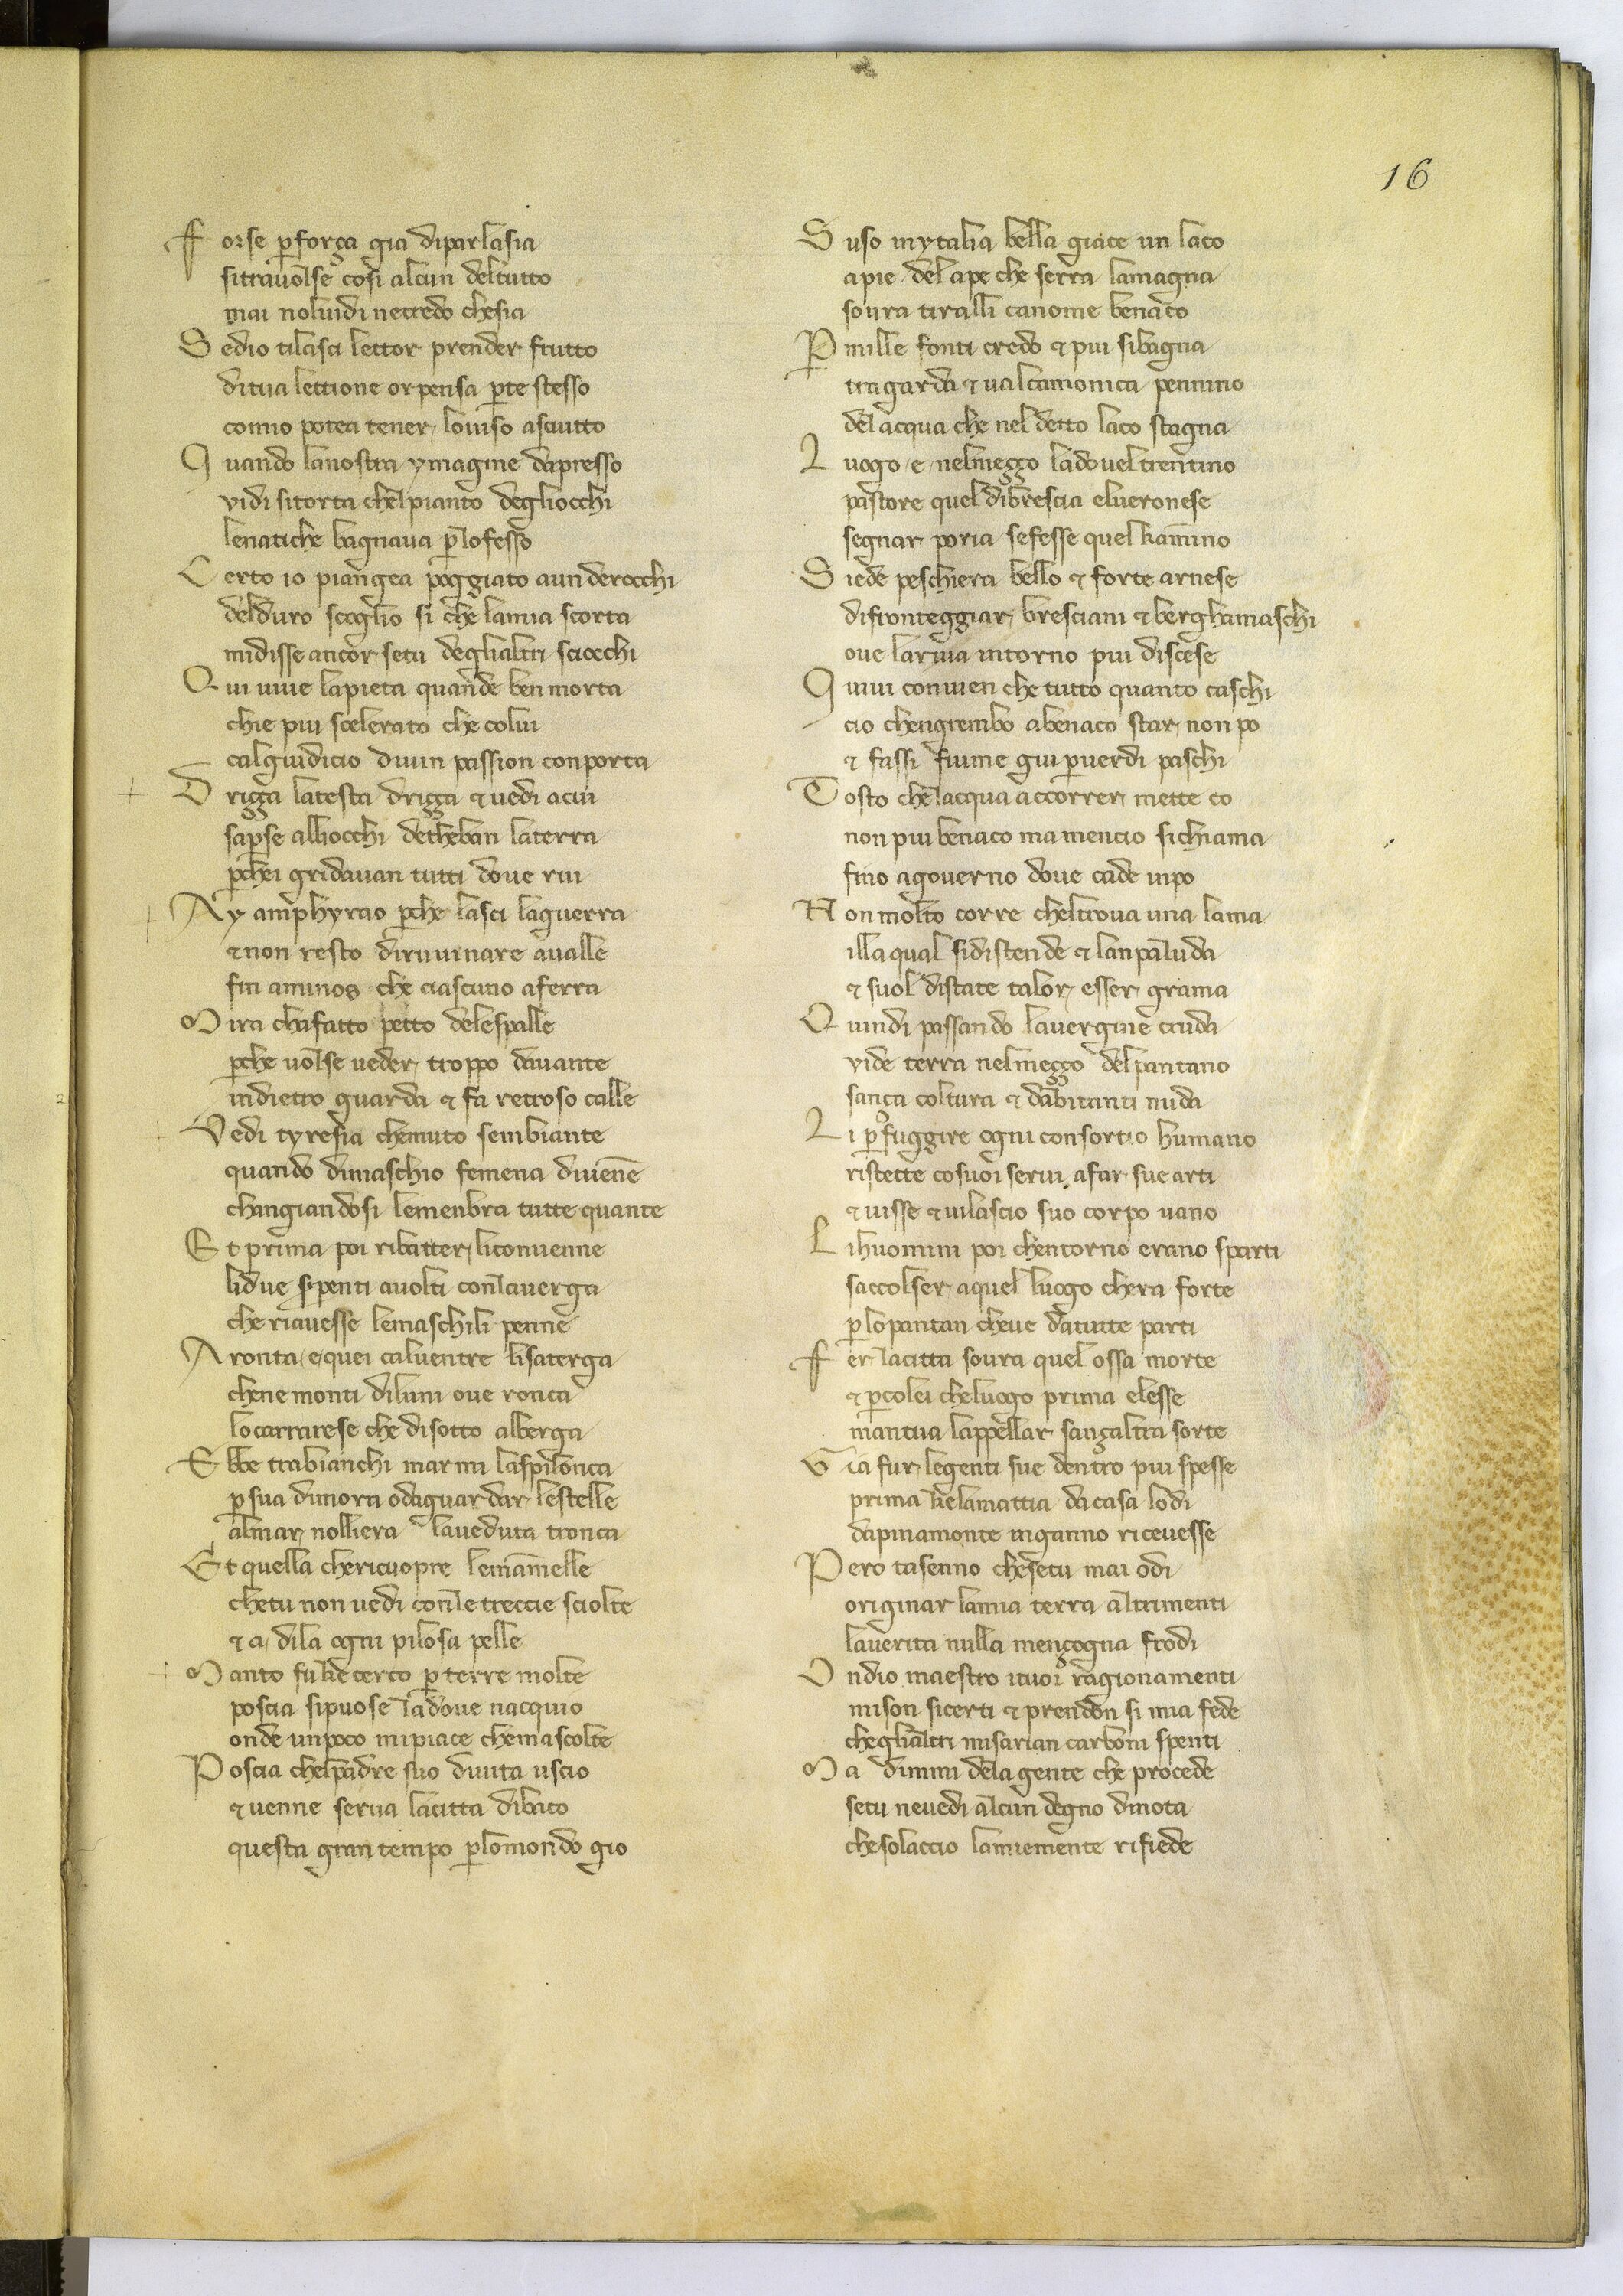 16
Forse ꝑforça gia diparlasia
sitrauolse cosi alcun deltutto
mai noluidi necredo chesia
Sedio tilasci lettor prender frutto
ditua lettione orpensa ꝑte stesso
comio potea tener louiso asciutto
Quando lanostra ymagine dapresso
vidi sitorta chelpianto degliocchi
lenatiche bagnaua ꝑlofesso
Certo io piangea poggiato aun derocchi
delduro scoglio si che lamia scorta
midisse ancor setu deglialtri sciocchi
Qui uiue lapieta quande ben morta
chie piu scelerato che colui
calguidicio diuin passion conporta
Driçça latesta driçça ⁊ uedi acui
saꝑse alliocchi detheban laterra
ꝑchei gridauan tutti doue rui
Ay amphyrao ꝑche lasci laguerra
⁊ non resto diruuinare aualle
fin aminos che ciascuno aferra
Mira chafatto petto delespalle
ꝑche uolse ueder troppo dauante
indietro guarda ⁊ fa retroso calle
Vedi tyresia chemuto sembiante
quando dimaschio femena diuenē
changiandosi lemenbra tutte quante
Et prima poi ribatter liconuenne
lidue sꝑpenti auolti conlauerga
che riauesse lemaschili penne
Aronta e quei caluentre lisaterga
chene monti diluni oue ronca
locarrarese che disotto alberga
Ebbe trabianchi marmi laspilonca
ꝑ sua dimora odaguardar lestelle
almar nolliera laueduta tronca
Et quella chericuopre lemāmelle
chetu non uedi conle treccie sciolte
⁊ a dila ogni pilosa pelle
Manto fu kē cerco ꝑ terre molte
poscia sipuose ladoue nacquio
onde unpoco mipiace chemascolte
Poscia chelpadre suo diuita uscio
⁊ uenne serua lacitta dibaco
questa gran tempo ꝑlomondo gio
Suso inytalia bella giace un laco
apie delape che serra lamagna
soura tiralli canome benaco
Ꝑ mille fonti credo ⁊ piu sibagna
tragarda ⁊ ualcamonica pennino
delacqua che nel detto laco stagna
Luogo e nelmeçço ladoueltrentino
pastore quel dibrescia elueronese
segnar poria sefesse quel kāmino
Siede peschiera bello ⁊ forte arnese
difronteggiar bresciani ⁊ berghamaschi
oue lariua intorno piu discese
Quiui conuien che tutto quanto caschi
cio chengrembo abenaco star non po
⁊ fassi fiume giu ꝑuerdi paschi
Tosto chelacqua accorrer mette co
non piu benaco ma mencio sichiama
fino agouerno doue cade inpo
Non molto corre cheltroua una lama
illaqual sidistende ⁊ lanpaluda
⁊ suol distate talor esser grama
Quindi passando lauergine cruda
vide terra nelmeçço delpantano
sança coltura ⁊ dabitanti nuda
Li ꝑ fuggire ogni consortio humano
ristette cosuoi serui afar sue arti
⁊ uisse ⁊ uilascio suo corpo uano
Lihuomini poi chentorno erano sparti
saccolser aquel luogo chera forte
ꝑlopantan cheue datutte parti
Fer lacitta soura quel ossa morte
⁊ ꝑcolei cheluogo prima elesse
mantua lappellar sançaltra sorte
Gia fur legenti sue dentro piu spesse
prima kelamattia dacasa lodi
dapinamonte inganno riceuesse
Pero tasenno chesetu mai odi
originar lamia terra altrimenti
lauerita nulla mençogna frodi
Ondio maestro ituoi ragionamenti
mison sicerti ⁊ prendon si mia fede
cheglialtri misarian carboni spenti
Ma dimmi dela gente che procede
setu neuedi alcun degno dinota
chesolaccio lamiemente rifiede